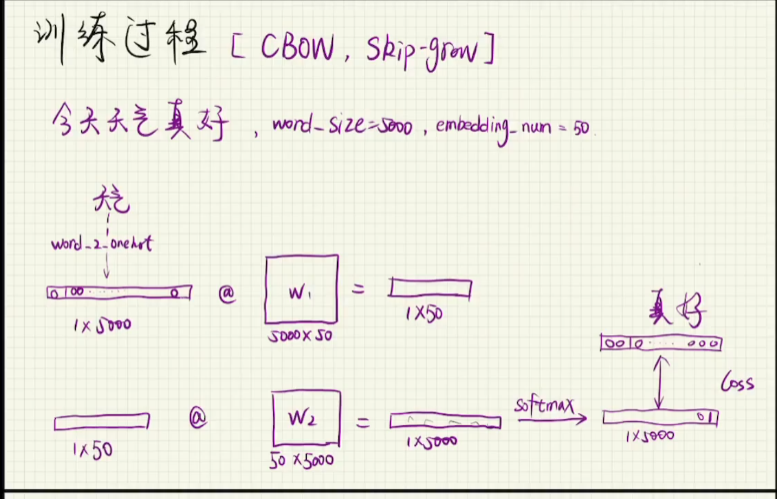 训练过程 [ CBOW, Skip-gram ]
今天天气真好, word_size=5000, embedding_num = 50
天气
word_2_onehot
0100 0 @ W1 =
1×5000 5000×50 1×50
真好
0010 000
Loss
@ W2 = softmax 01
1×50 50×5000 1×5000 1×5000